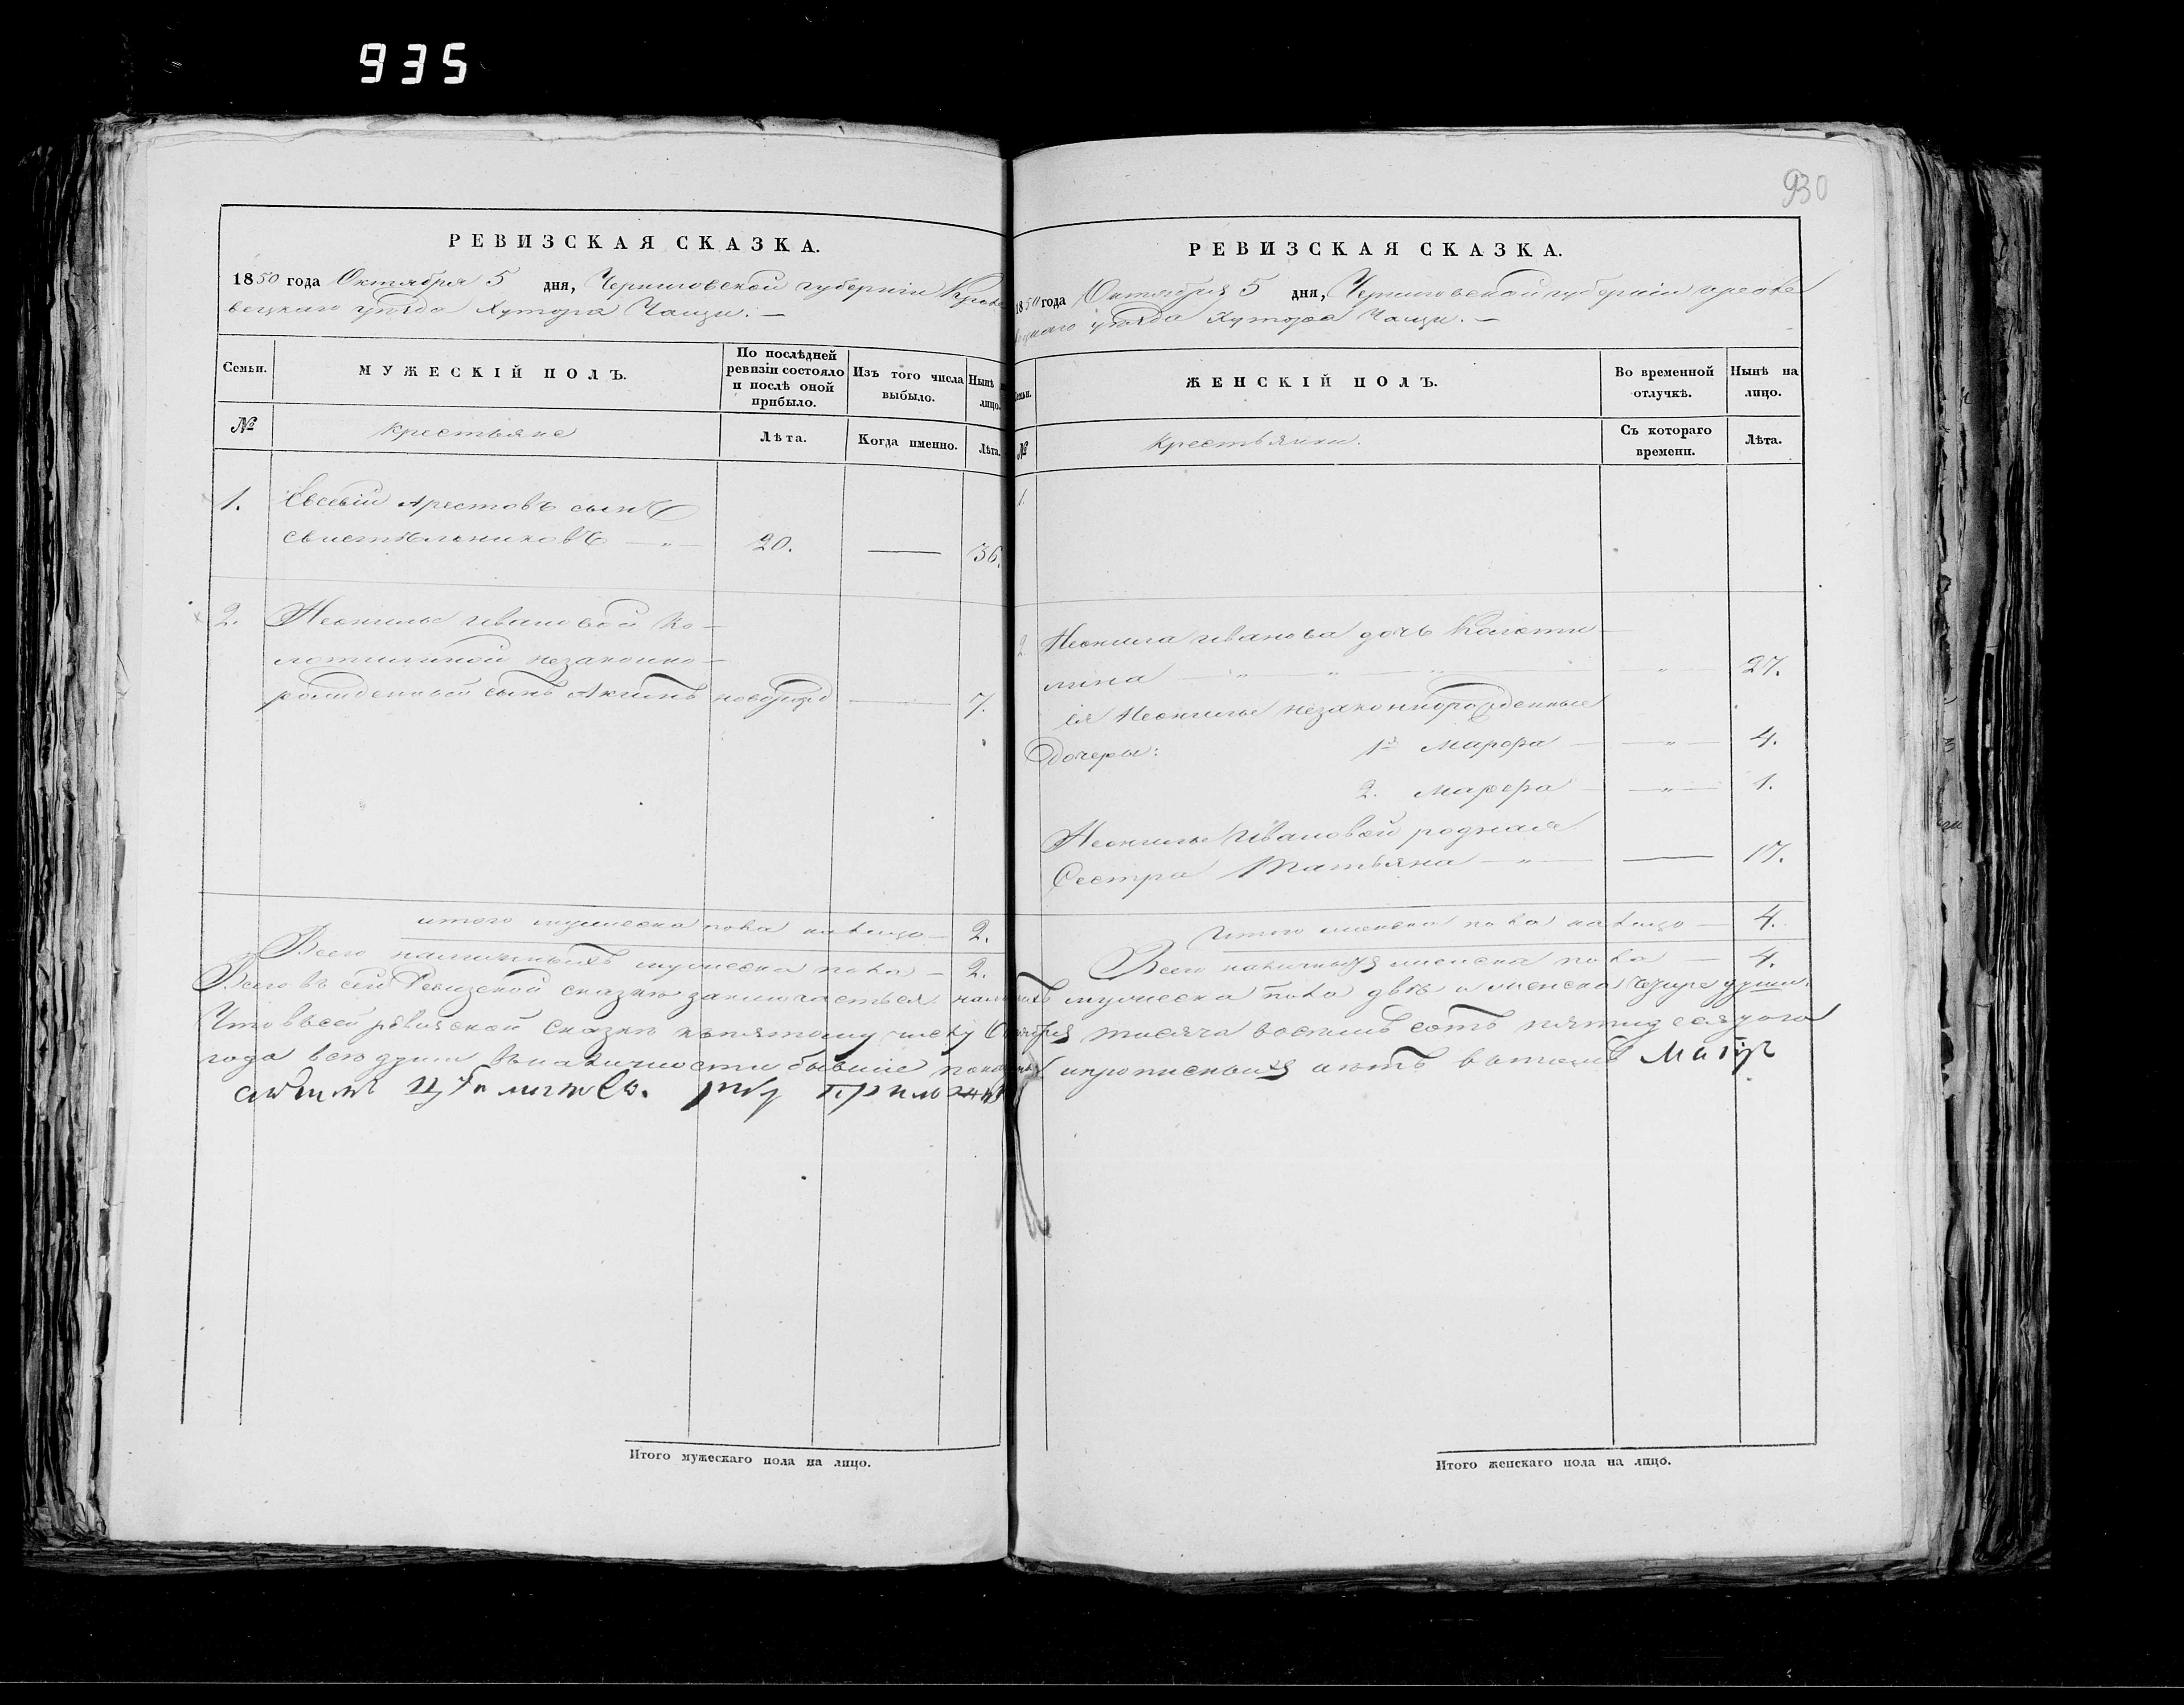 935
930
РЕВИЗСКАЯ СКАЗКА.
1850 года Октября 5 дня, Черниговской губерніи Кроле
вецкаго уѣзда Хутора Чащи. —
Семьи.
МУЖЕСКІЙ ПОЛЪ.
По послѣдней ревизіи состояло и послѣ оной прибыло.
Изъ того числа выбыло.
Нынѣ на лицо.
№
Крестьяне
Лѣта.
Когда именно.
Лѣта.
1. Евсевій Арестовъ сынъ
20. — 36.
2. Неонилы Ивановой Ко-
лотилиной незаконно-
рожденный сынъ Акимъ новорожд — 7.
итого мужеска пола налицо — 2.
Всего наличныхъ мужеска пола — 2.
РЕВИЗСКАЯ СКАЗКА.
1850 года Октября 5 дня, Черниговской губерніи Кроле
вецкаго уѣзда Хутора Чащи. —
Семьи.
ЖЕНСКІЙ ПОЛЪ.
Во временной отлучкѣ.
Нынѣ на лицо.
№
Крестьянки.
Съ котораго времени.
Лѣта.
1.
2. Неонила Иванова дочь Колоти-
лина — 27.
ея Неонилы незаконнорожденные
дочеры: 1я Марфа — 4.
2. Марфа — 1.
Неонилы Ивановой родная
Сестра Татьяна — 17.
Итого женска пола налицо — 4.
Всего наличныхъ женска пола — 4.
Всего въ сей Ревизской сказкѣ заключается наличныхъ мужеска пола двѣ и женска четыре души.
Что въ сей ревизской сказкѣ къ пятому числу Октября тысяча восемь сотъ пятидесятого
года всѣ души въ наличности бывшіе показаны и прописныхъ нѣтъ в томъ
Итого мужескаго пола на лицо.
Итого женскаго пола на лицо.